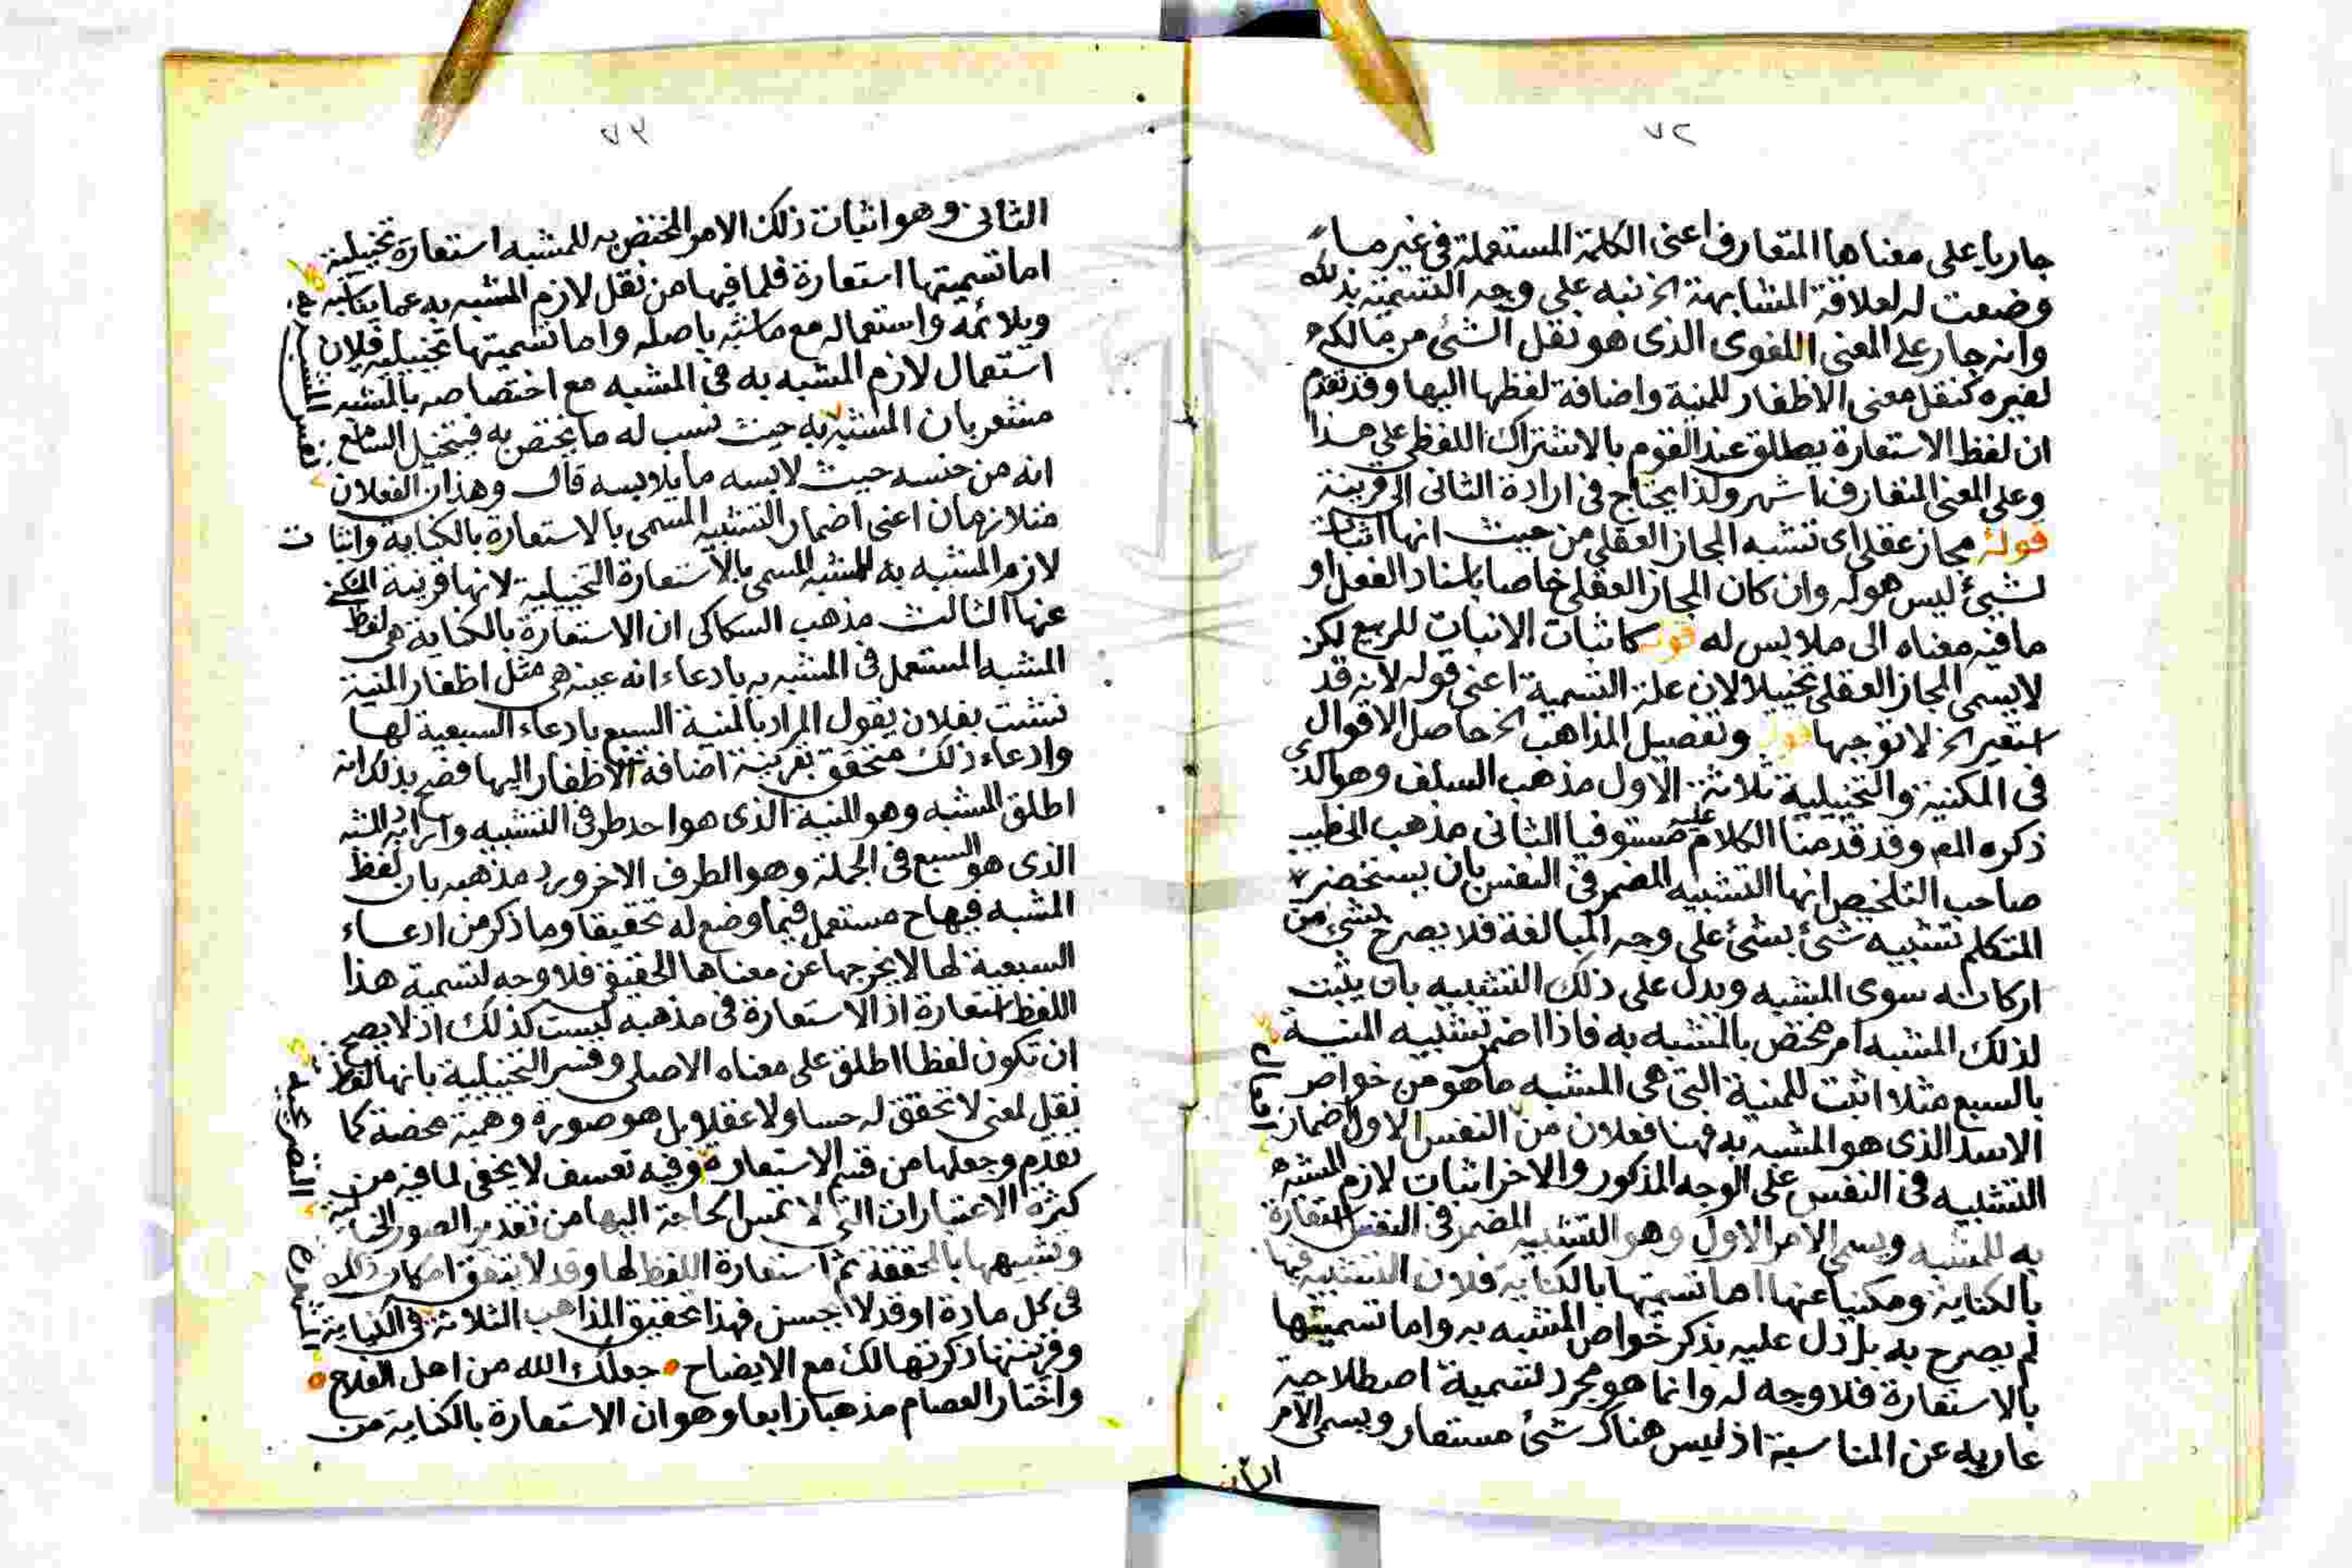 ٧٢
جاريا على معناها المتعارف اعنى الكلمة المستعملة فى غير ما
وضعت له لعلاقة المشابهة الخ نبه على وجه التسمية بذلك
وانه جار على المعنى اللغوى الذى هو نقل الشئ من مالكه
لغيره كنقل معنى الاظفار للمنية واضافة لفظها اليها وقد تقدم
ان لفظ الاستعارة يطلق عند القوم بالاشتراك اللفظى على هذا
وعلى المعنى المتعارف اشهر ولذا يحتاج فى ارادة الثانى الى قرينة
قوله مجاز عقلى اى تشبه المجاز العقلى من حيث انها اثبات
لشئ ليس هو له وان كان المجاز العقلى خاصا باسناد الفعل او
ما فيه معناه الى ملابس له قوله كاثبات الانبات للربيع لكن
لا يسمى المجاز العقلى تخييلا لان علة التسمية اعنى قوله لانه قد
استعير الخ لا توجبها قوله وتفصيل المذاهب الخ حاصل الاقوال
فى المكنية والتخييلية ثلاثة الاول مذهب السلف وهو الذى
ذكره المص وقد قدمنا الكلام عليه مستوفيا الثانى مذهب الخطيب
صاحب التلخيص انها التشبيه المضمر فى النفس بان يستحضر
المتكلم تشبيه شئ بشئ على وجه المبالغة فلا يصرح بشئ من
اركانه سوى المشبه ويدل على ذلك التشبيه بان يثبت
لذلك المشبه امر مختص بالمشبه به فاذا اضمر تشبيه المنية
بالسبع مثلا اثبت للمنية التى هى المشبه ما هو من خواص
الاسد الذى هو المشبه به فهنا فعلان من النفس الاول اضمار
التشبيه فى النفس على الوجه المذكور والاخر اثبات لازم المشبه
به للمشبه ويسمى الامر الاول وهو التشبيه المضمر فى النفس استعارة
بالكناية ومكنيا عنها اما تسميتها بالكناية فلان التشبيه فيها
لم يصرح به بل دل عليه بذكر خواص المشبه به واما تسميتها
بالاستعارة فلا وجه له وانما هو مجرد تسمية اصطلاحية
عارية عن المناسبة اذ ليس هناك شئ مستعار ويسمى الامر
الثانى
٧٣
الثانى وهو اثبات ذلك الامر المختص به للمشبه استعارة تخييلية
اما تسميتها استعارة فلما فيها من نقل لازم المشبه به عما يناسبه
ويلائمه واستعماله مع ما شبه باصله واما تسميتها تخييلية فلان
استعمال لازم المشبه به فى المشبه مع اختصاصه بالمشبه
مشعر بان المشبه به حيث نسب له ما يختص به فيتخيل السامع
انه من جنسه حيث لابسه ما يلابسه قال وهذان الفعلان
متلازمان اعنى اضمار التشبيه المسمى بالاستعارة بالكناية واثبات
لازم المشبه به للمشبه المسمى بالاستعارة التخييلية لانها قرينة المكنى
عنها الثالث مذهب السكاكى ان الاستعارة بالكناية هى لفظ
المشبه المستعمل فى المشبه به بادعاء انه عينه هى مثل اظفار المنية
نشبت بفلان يقول المراد بالمنية السبع بادعاء السبعية لها
وادعاء ذلك متحقق بقرينة اضافة الاظفار اليها فصح بذلك انه
اطلق المشبه وهو المنية الذى هو احد طرفى التشبيه واراد به المشبه
الذى هو السبع فى الجملة وهو الطرف الاخر ويرد مذهبه بان لفظ
المشبه فيها ح مستعمل فيما وضع له تحقيقا وما ذكر من ادعاء
السبعية لها لا يخرجها عن معناها الحقيقى فلا وجه لتسمية هذا
اللفظ استعارة اذ الاستعارة فى مذهبه ليست كذلك اذ لا يصح
ان تكون لفظا اطلق على معناه الاصلى وفسر التخييلية بانها لفظ
نقل لمعنى لا تحقق له حسا ولا عقلا بل هو صورة وهمية محضة كما
تقدم وجعلها من قسم الاستعارة وفيه تعسف لا يخفى لما فيه من
كثرة الاعتبارات التى لا تمس الحاجة اليها من تقدير الصور الخيالية
وتشبيهها بالمحققة ثم استعارة اللفظ لها وقد لا يتفق امكان ذلك
فى كل مادة او قد لا يحسن فهذا تحقيق المذاهب الثلاثة فى الكناية
وقرينتها ذكرتها لك مع الايضاح جعلك الله من اهل الفلاح
واختار العصام مذهبا رابعا وهو ان الاستعارة بالكناية من
التصريحية